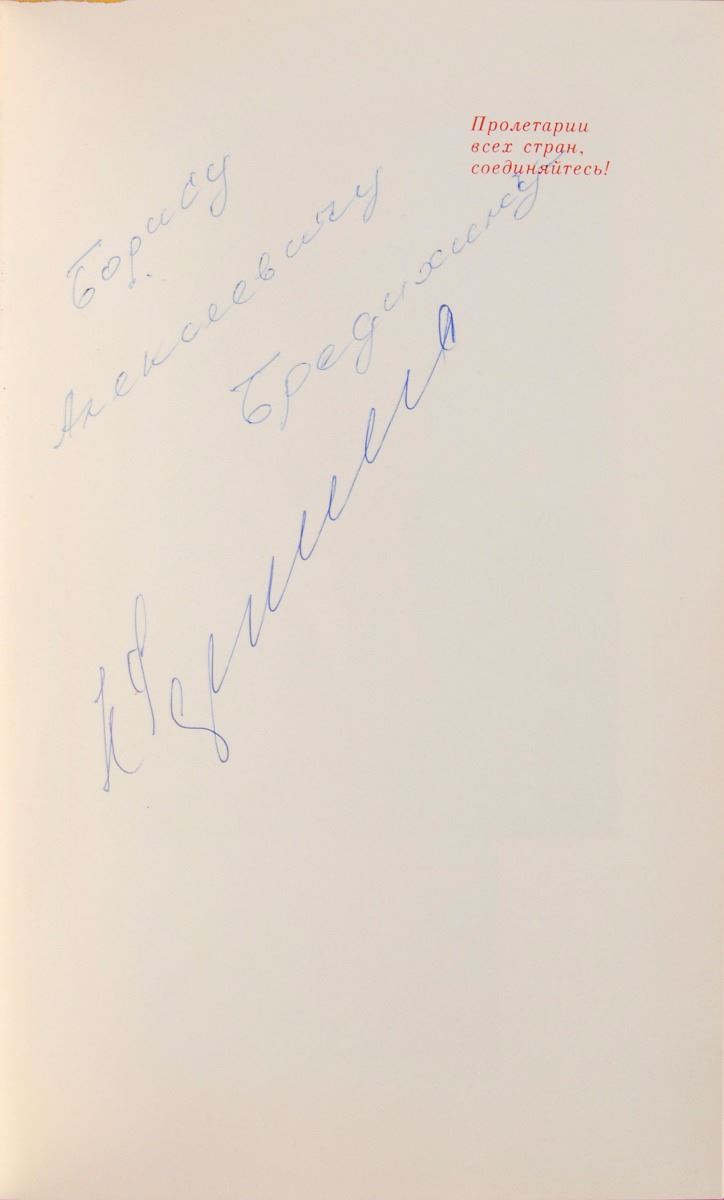 Пролетарии
всех стран,
соединяйтесь!
Борису
Алексеевичу
Бредихину